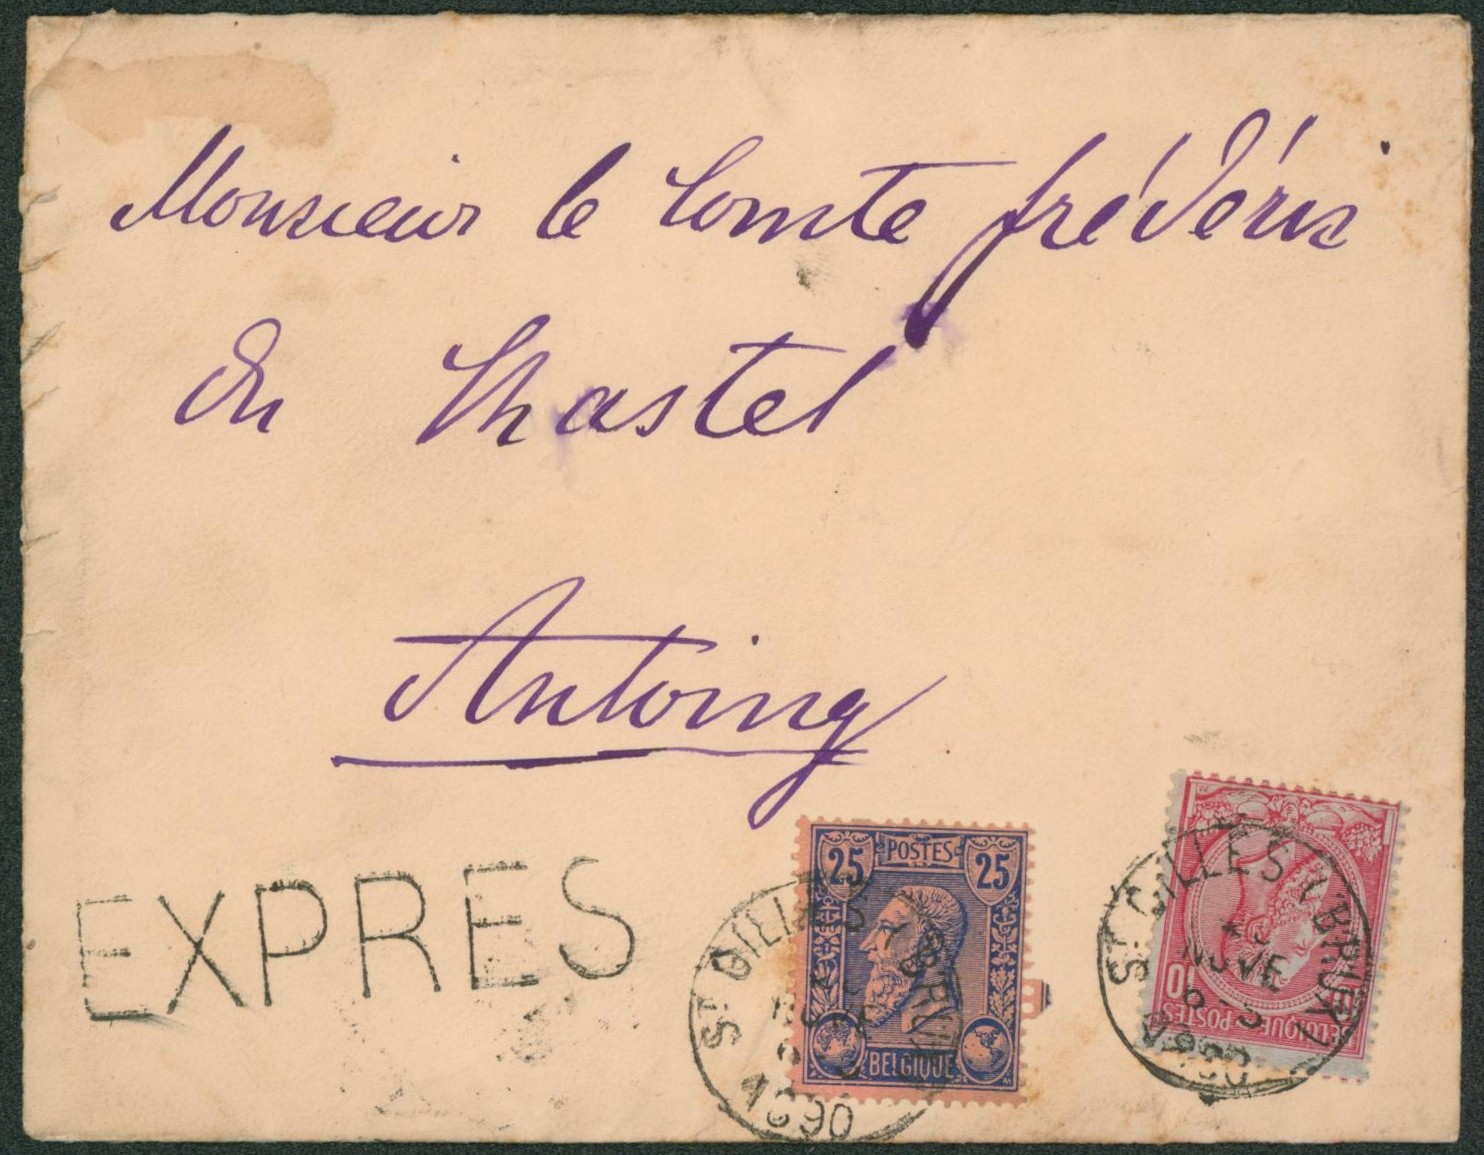 Monsieur le Comte frédéric
du Chastel
Antoing
EXPRES
25 POSTES 25
BELGIQUE
ST GILLES (BRUX)
1890
10
BELGIQUE-POSTES
ST GILLES (BRUX)
NOVE
1890